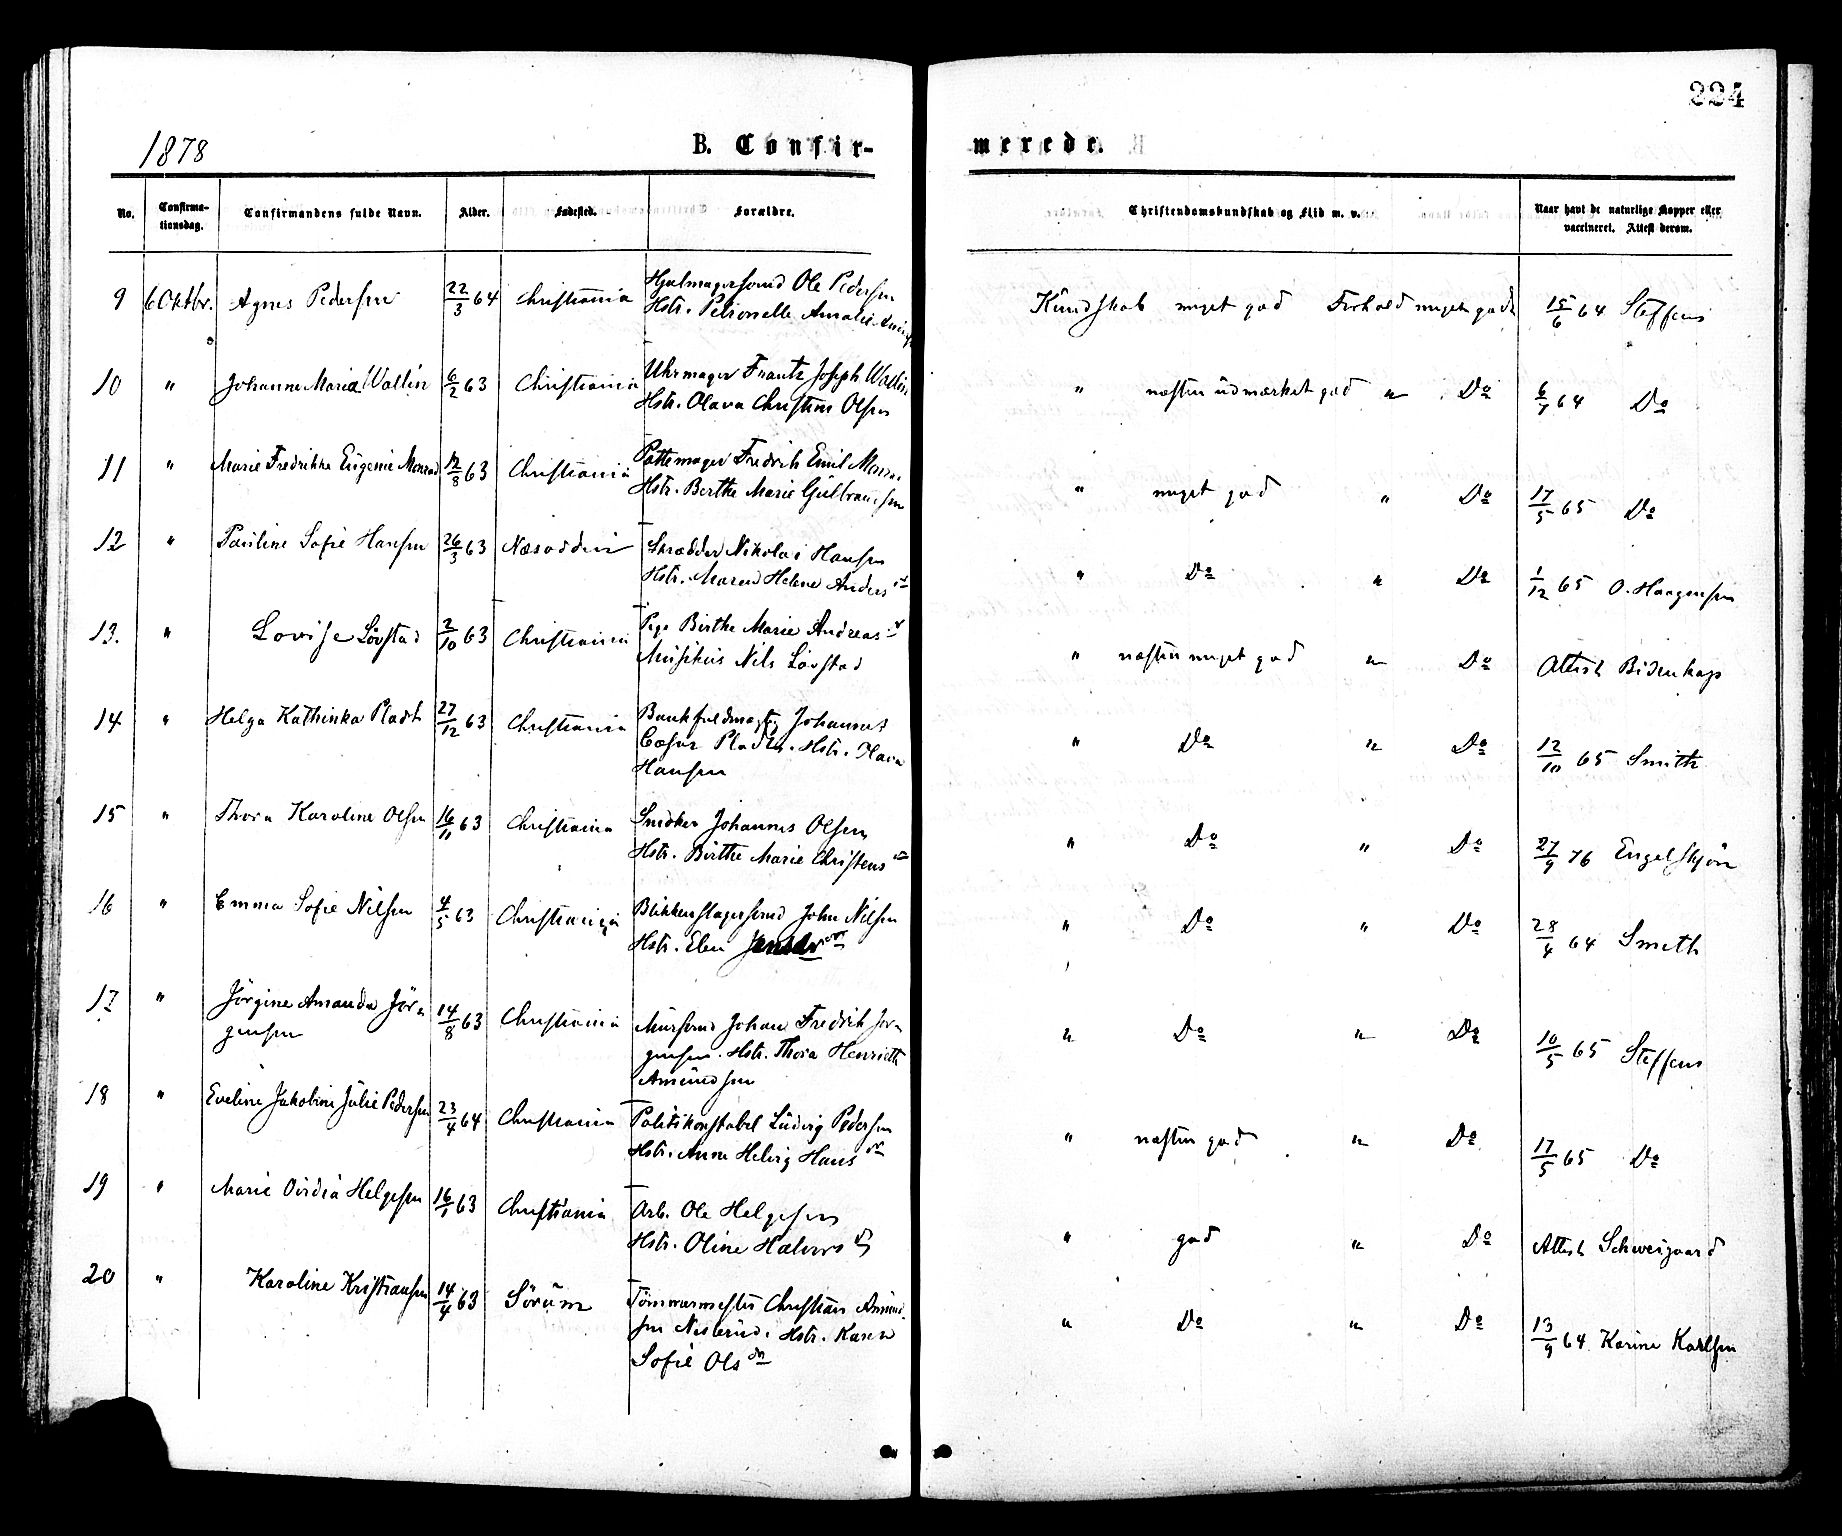 224
1878
B. Confir-
merede.
No. Confirma-tionsdag. Confirmandens fulde Navn. Alder. Fødested. Forældre. Christendomskundskab og Flid m. v. Naar havt de naturlige Kopper eller vaccineret. Attest derom.
9 6 Oktbr. Agnes Pedersen 22/3 64 Christiania Hjulmagersvend Ole Pedersen
Hstr. Petronelle Amalie
Kundskab meget god Forhold meget godt 15/6 64 Steffens
10 " Johanne Marie Wallin 6/2 63 Christiania Uhrmager Frantz Joseph Wallin
Hstr. Olava Christine Olsen
" næsten udmærket god " Do 6/7 64 Do
11 " Marie Fredrikke Eugenie Monrad 12/8 63 Christiania Pottemager Fredrik Emil
Hstr. Berthe Marie Gulbransen
" meget god " Do 17/5 65 Do
12 " Pauline Sofie Hansen 26/3 63 Næsodden Skrædder Nikolai Hansen
Hstr. Maren Helene Andersdt
" Do " Do 1/12 65 O. Haagensen
13. " Lovise Løvstad 2/10 63 Christiania Pige Birthe Marie Andreasdt
Musikus Nils Løvstad
" næsten meget god " Do Attest Bidenkap
14 " Helga Kathinka Pladt 27/12 63 Christiania Bankfuldmægtig Johannes
Cæsar Pladt. Hstr. Olava
Hansen
" Do " Do 12/10 65 Smith
15 " Thora Karoline Olsen 16/11 63 Christiania Snedker Johannes Olsen
Hstr. Birthe Marie Christensdt
" Do " Do 27/9 76 Engelskjøn
16 " Emma Sofie Nilsen 4/5 63 Christiania Blikkenslagersvend John Nilsen
Hstr. Elen
" Do " Do 28/4 64 Smith
17 " Jørgine Amanda Jør-
gensen 14/8 63 Christiania Mursvend Johan Fredrik Jør-
gensen. Hstr. Thora Henriette
Amundsen
" Do " Do 10/5 65 Steffens
18 " Eveline Jakobine Julie Pedersen 23/4 64 Christiania Politikonstabel Ludvig Pedersen
Hstr. Anne Helvig Hansdn
" næsten god " Do 17/5 65 Do
19 " Marie Ovidia Helgesen 16/1 63 Christiania Arb. Ole Helgesen
Hstr. Oline Halvorsdt
" god " Do Attest Schweigaard
20 " Karoline Kristiansen 14/4 63 Sørum Tømmermester Christian Amund-
sen Neskrud. Hstr. Karen
Sofie Olsdn
" Do " Do 13/9 64 Karine Karlsen